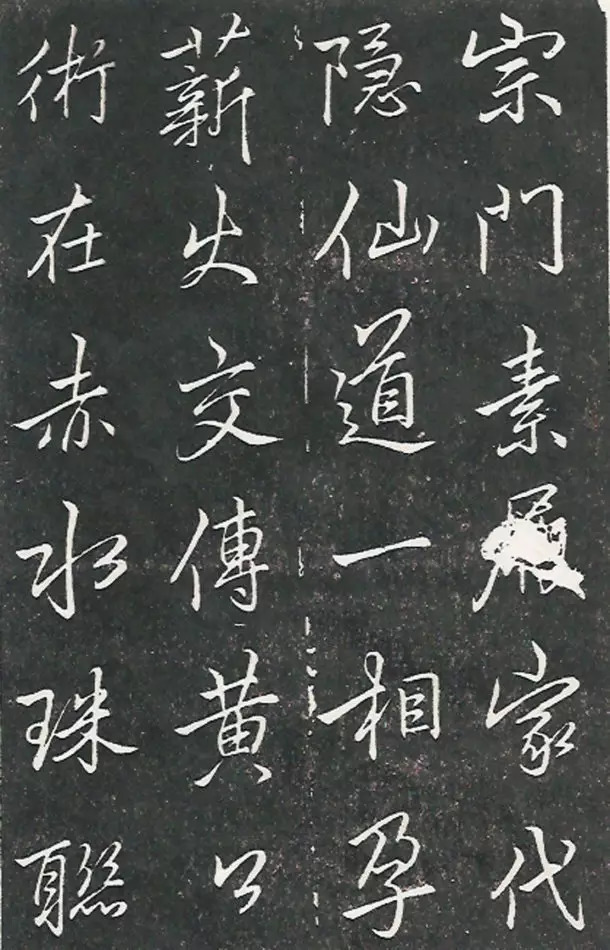 宗門素家代
隐仙道一相孕
薪火交傳黃公
術在赤水珠聯